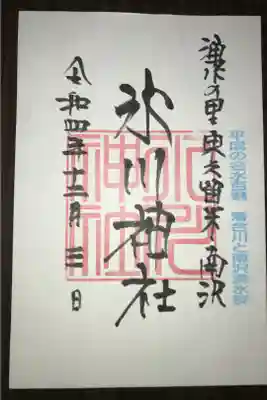 平成の名水百選 落合川と南沢湧水群
湧水の里 東久留米・南沢
氷川神社
氷川
神社
令和四年十二月三日